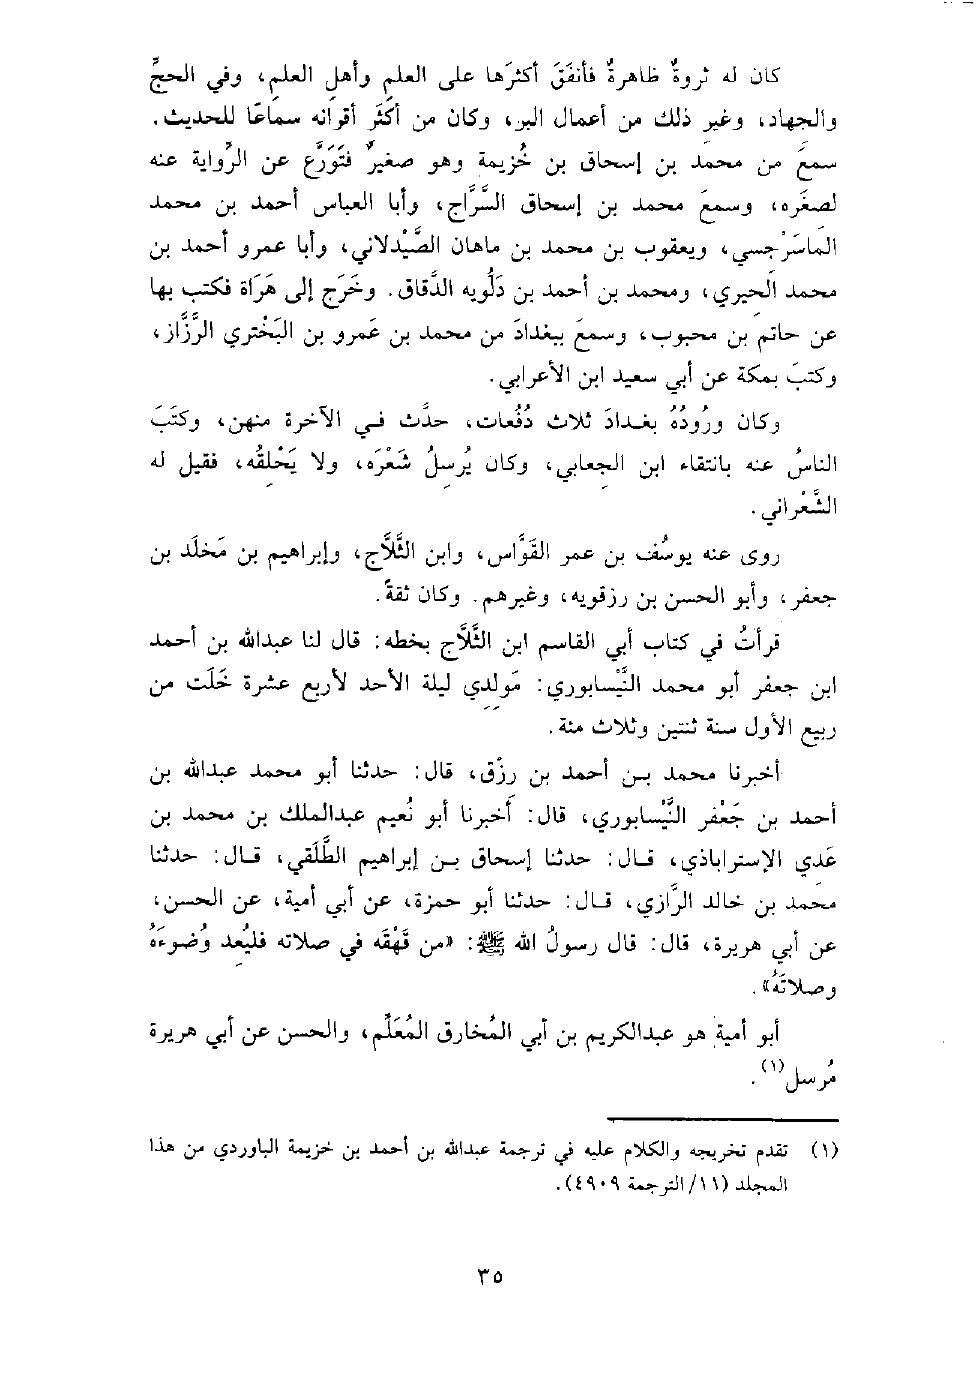 كان له ثروةٌ ظاهرةٌ فأنفَقَ أكثرَها على العلم وأهل العلم، وفي الحجِّ
والجهاد، وغير ذلك من أعمال البر، وكان من أكثَر أقرانه سماعًا للحديث.
سمعَ من محمد بن إسحاق بن خُزيمة وهو صغيرٌ فتَوَرَّع عن الرِّواية عنه
لصغَره، وسمعَ محمد بن إسحاق السَّرَّاج، وأبا العباس أحمد بن محمد
الماسَرْجِسي، ويعقوب بن محمد بن ماهان الصَّيْدلاني، وأبا عمرو أحمد بن
محمد الحِيري، ومحمد بن أحمد بن دَلُويه الدَّقاق. وخَرَج إلى هَرَاة فكتب بها
عن حاتم بن محبوب، وسمعَ ببغدادَ من محمد بن عَمرو بن البَخْتري الرَّزَّاز،
وكتبَ بمكة عن أبي سعيد ابن الأعرابي.
وكان ورُودُهُ بغدادَ ثلاث دُفُعات، حدَّث في الآخرة منهن، وكتَبَ
الناسُ عنه بانتقاء ابن الجِعابي، وكان يُرسلُ شَعْرَه، ولا يَحْلِقُه، فقيل له
الشَّعْراني.
روى عنه يوسُف بن عمر القَوَّاس، وابن الثَّلَّاج، وإبراهيم بن مَخلَد بن
جعفر، وأبو الحسن بن رزقويه، وغيرهم. وكان ثقةً.
قرأتُ في كتاب أبي القاسم ابن الثَّلَّاج بخطه: قال لنا عبدالله بن أحمد
ابن جعفر أبو محمد النَّيْسابوري: مَولِدِي ليلة الأحد لأربع عشرة خَلَت من
ربيع الأول سنة ثنتين وثلاث مئة.
أخبرنا محمد بن أحمد بن رزْق، قال: حدثنا أبو محمد عبدالله بن
أحمد بن جَعْفر النَّيْسابوري، قال: أخبرنا أبو نُعيم عبدالملك بن محمد بن
عَدِي الإستراباذي، قال: حدثنا إسحاق بن إبراهيم الطَّلَقي، قال: حدثنا
محمد بن خالد الرَّازي، قال: حدثنا أبو حمزة، عن أبي أمية، عن الحسن،
عن أبي هريرة، قال: قال رسولُ الله ﷺ: «من قَهْقَه في صلاته فليُعِد وُضوءَهُ
وصلاتَهُ».
أبو أمية هو عبدالكريم بن أبي المُخارق المُعَلِّم، والحسن عن أبي هريرة
مُرسل(١).
(١) تقدم تخريجه والكلام عليه في ترجمة عبدالله بن أحمد بن خزيمة الباوردي من هذا
المجلد (١١/ الترجمة ٤٩٠٩).
٣٥